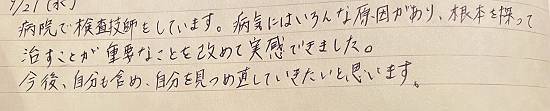 1/21 (水)
病院で検査技師をしています。病気にはいろんな原因があり、根本を探って
治すことが重要なことを改めて実感できました。
今後、自分も含め、自分を見つめ直していきたいと思います。